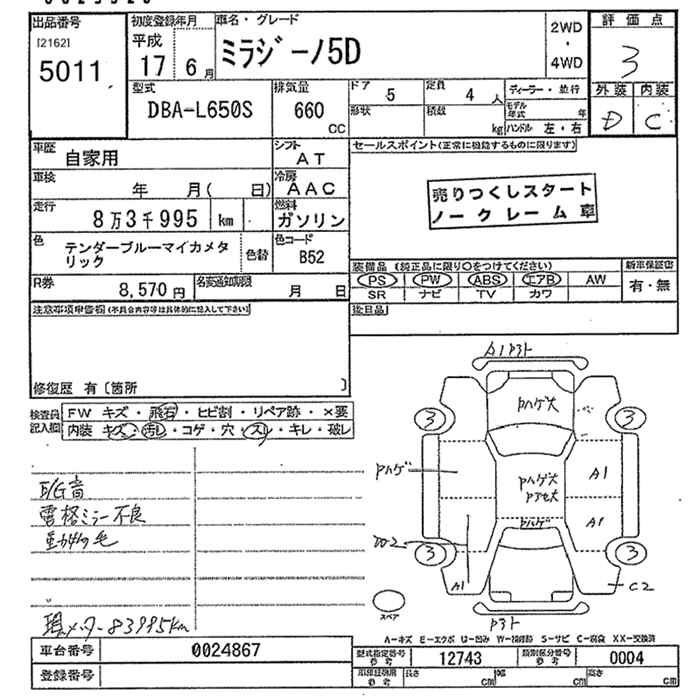 出品番号
[2162]
5011
初度登録年月
平成
17 6月
車名・グレード
ミラジーノ5D
2WD
・
4WD
評価点
3
外装 内装
D C
型式
DBA-L650S
排気量
660
CC
ドア 5
定員 4 人
形状
積載 kg
ディーラー・並行
モデル年式 年
ハンドル 左・右
車歴
自家用
シフト
AT
セールスポイント(正常に機能するものに限ります)
売りつくしスタート
ノークレーム車
車検
年 月( 日)
冷房
AAC
走行
8万3千995 km
燃料
ガソリン
色
テンダーブルーマイカメタ
リック
色替
色コード
B52
装備品 (純正品に限り○をつけてください)
新車保証書
PS PW ABS エアB AW
有・無
SR ナビ TV カワ
R券
8,570円
名変通知期限
月 日
注意事項申告欄(不具合内容等は具体的に記入して下さい)
後日品
修復歴 有〔箇所 〕
検査員
記入欄
FW キズ・飛石・ヒビ割・リペア跡・×要
内装 キズ・汚レ・コゲ・穴・スレ・キレ・破レ
E/G音
雷格ミラー不良
動物の毛
現メーター83995km
A1PヨT
3 3
PハゲA大
Pハゲ
A1
Pハゲ大
Pアセ大
Pハゲ
A1
3 3
A1
C2
スペア
PヨT
A-キズ E-エクボ U-凹み W-補修跡 S-サビ C-腐食 XX-交換済
車台番号
0024867
型式指定番号
参考
12743
類別区分番号
参考
0004
登録番号
車庫証明用
参考
長さ cm
幅 cm
高さ cm